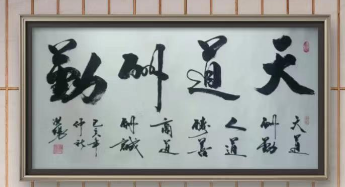 天道酬勤
天道
酬勤
人道
酬善
商道
酬誠
己亥年
仲秋